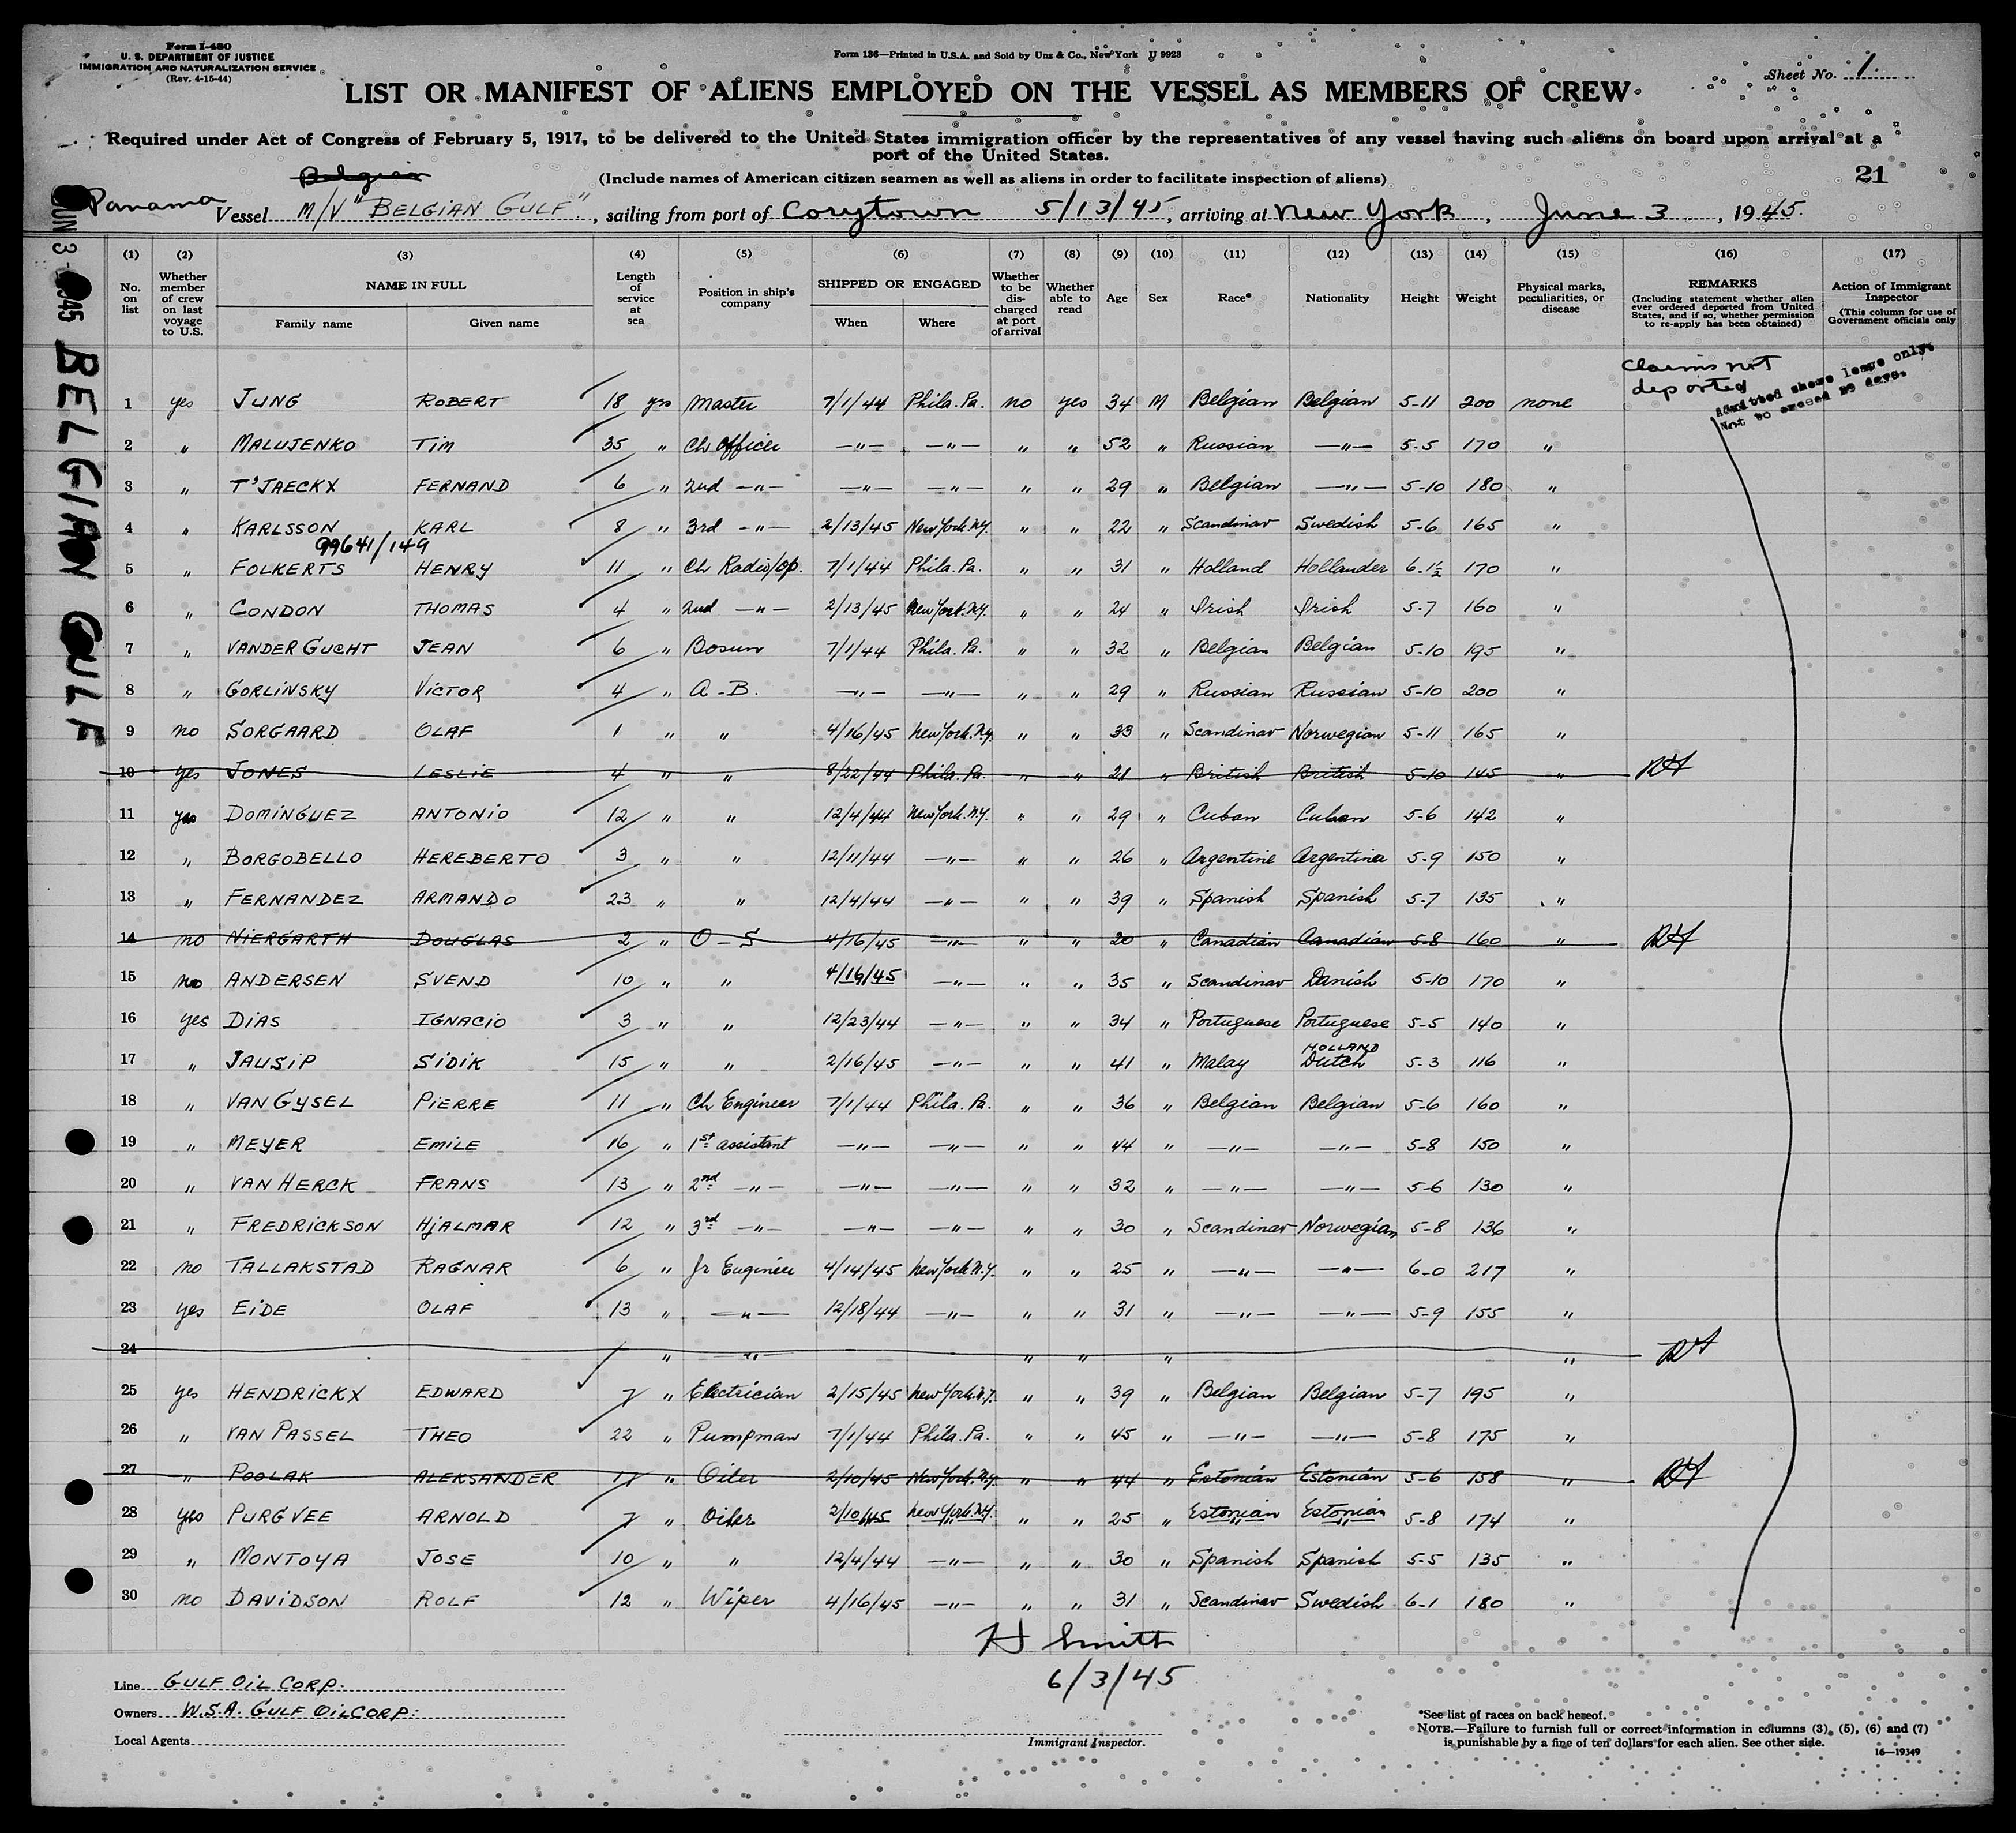 Form I-480
U. S. DEPARTMENT OF JUSTICE
IMMIGRATION AND NATURALIZATION SERVICE
(Rev. 4-15-44)
Form 136—Printed in U.S.A. and Sold by Unz & Co., New York U 9923
Sheet No. 1.
LIST OR MANIFEST OF ALIENS EMPLOYED ON THE VESSEL AS MEMBERS OF CREW
Required under Act of Congress of February 5, 1917, to be delivered to the United States immigration officer by the representatives of any vessel having such aliens on board upon arrival at a
port of the United States.
Belgian
(Include names of American citizen seamen as well as aliens in order to facilitate inspection of aliens)
21
Panama Vessel M/V "BELGIAN GULF", sailing from port of Corytown 5/13/45, arriving at New York, June 3, 1945.
JUN 3 - 1945 BELGIAN GULF
(1) (2) (3) (4) (5) (6) (7) (8) (9) (10) (11) (12) (13) (14) (15) (16) (17)
No. on list
Whether member of crew on last voyage to U.S.
NAME IN FULL
Family name Given name
Length of service at sea
Position in ship's company
SHIPPED OR ENGAGED
When Where
Whether to be discharged at port of arrival
Whether able to read
Age
Sex
Race*
Nationality
Height
Weight
Physical marks, peculiarities, or disease
REMARKS
(Including statement whether alien ever ordered deported from United States, and if so, whether permission to re-apply has been obtained)
Action of Immigrant Inspector
(This column for use of Government officials only
Claims not
deported
Admitted shore leave only.
Not to exceed 29 days.
1 yes JUNG ROBERT 18 yrs Master 7/1/44 Phila. Pa. no yes 34 M Belgian Belgian 5-11 200 none
2 " MALUJENKO TIM 35 " Ch Officer —"— —"— " " 52 " Russian —"— 5-5 170 "
3 " T'JAECKX FERNAND 6 " 2nd —"— —"— —"— " " 29 " Belgian —"— 5-10 180 "
4 " KARLSSON KARL 8 " 3rd —"— 2/13/45 New York. NY. " " 22 " Scandinav Swedish 5-6 165 "
99641/149
5 " FOLKERTS HENRY 11 " Ch Radio/op. 7/1/44 Phila. Pa. " " 31 " Holland Hollander 6-1½ 170 "
6 " CONDON THOMAS 4 " 2nd —"— 2/13/45 New York. NY. " " 24 " Irish Irish 5-7 160 "
7 " VANDER GUCHT JEAN 6 " Bosun 7/1/44 Phila. Pa. " " 32 " Belgian Belgian 5-10 195 "
8 " GORLINSKY VICTOR 4 " A-B. —"— —"— " " 29 " Russian Russian 5-10 200 "
9 no SORGAARD OLAF 1 " " 4/16/45 New York. Ny. " " 33 " Scandinav Norwegian 5-11 165 "
10 yes JONES LESLIE 4 " " 8/22/44 Phila. Pa. " " 21 " British British 5-10 145 "
11 yes DOMINGUEZ ANTONIO 12 " " 12/4/44 New York. N.Y. " " 29 " Cuban Cuban 5-6 142 "
12 " BORGOBELLO HEREBERTO 3 " " 12/11/44 —"— " " 26 " Argentine Argentina 5-9 150 "
13 " FERNANDEZ ARMANDO 23 " " 12/4/44 —"— " " 39 " Spanish Spanish 5-7 135 "
14 no NIERGARTH DOUGLAS 2 " O-S 4/16/45 —"— " " 20 " Canadian Canadian 5-8 160 "
15 no ANDERSEN SVEND 10 " " 4/16/45 —"— " " 35 " Scandinav Danish 5-10 170 "
16 yes DIAS IGNACIO 3 " " 12/23/44 —"— " " 34 " Portuguese Portuguese 5-5 140 "
HOLLAND
17 " JAUSIP SIDIK 15 " " 2/16/45 —"— " " 41 " Malay Dutch 5-3 116 "
18 " VAN GYSEL PIERRE 11 " Ch Engineer 7/1/44 Phila. Pa. " " 36 " Belgian Belgian 5-6 160 "
19 " MEYER EMILE 16 " 1st assistant —"— —"— " " 44 " —"— —"— 5-8 150 "
20 " VAN HERCK FRANS 13 " 2nd —"— —"— —"— " " 32 " —"— —"— 5-6 130 "
21 " FREDRICKSON HJALMAR 12 " 3rd —"— —"— —"— " " 30 " Scandinav Norwegian 5-8 136 "
22 no TALLAKSTAD RAGNAR 6 " Jr Engineer 4/14/45 New York N.Y. " " 25 " —"— —"— 6-0 217 "
23 yes EIDE OLAF 13 " —"— 12/18/44 —"— " " 31 " —"— —"— 5-9 155 "
24 " —"— " " " "
25 yes HENDRICKX EDWARD 7 " Electrician 2/15/45 New York. N.Y. " " 39 " Belgian Belgian 5-7 195 "
26 " VAN PASSEL THEO 22 " Pumpman 7/1/44 Phila. Pa. " " 45 " —"— —"— 5-8 175 "
27 " POOLAK ALEKSANDER 17 " Oiler 2/10/45 New York. Ny. " " 44 " Estonian Estonian 5-6 158 "
28 yes PURGVEE ARNOLD 7 " Oiler 2/10/45 New York. NY. " " 25 " Estonian Estonian 5-8 174 "
29 " MONTOYA JOSE 10 " " 12/4/44 —"— " " 30 " Spanish Spanish 5-5 135 "
30 no DAVIDSON ROLF 12 " Wiper 4/16/45 —"— " " 31 " Scandinav Swedish 6-1 180 "
H Smith
6/3/45
Line GULF OIL CORP.
Owners W.S.A. GULF OIL CORP.
Local Agents
Immigrant Inspector.
*See list of races on back hereof.
NOTE.—Failure to furnish full or correct information in columns (3), (5), (6) and (7)
is punishable by a fine of ten dollars for each alien. See other side.
16—19349